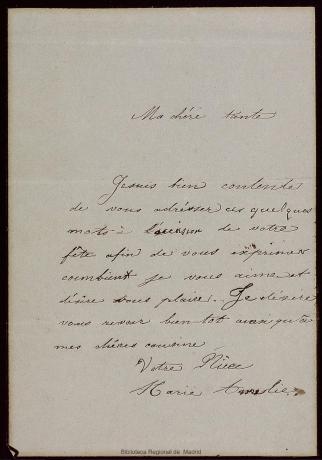 Ma chére tante
Je suis bien contente
de vous adrésser ces quelques
mots à l'ocasion de votre
fête afin de vous exprimer
combient je vous aime et
désire vous plaire. Je désire
vous revoir bien-tot ainsi qu'à
mes chéres cousine
Votre Niéce
Marie Amelie
Biblioteca Regional de Madrid